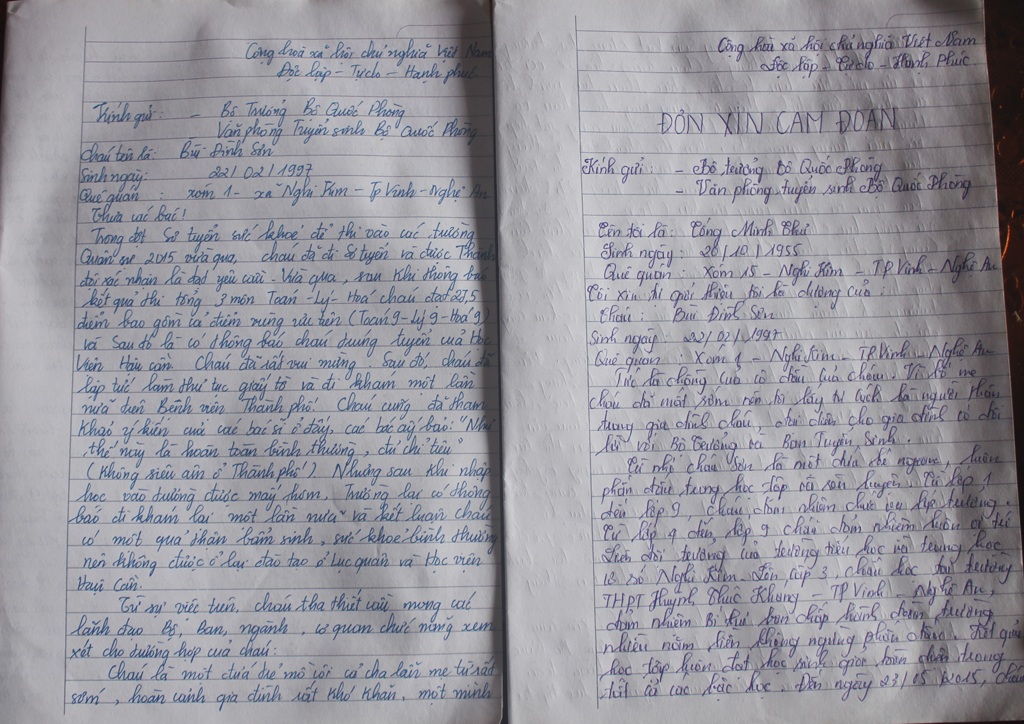 Cộng hoà xã hội chủ nghĩa Việt Nam
Độc lập - Tự do - Hạnh phúc
Kính gửi: - Bộ Trưởng Bộ Quốc Phòng
Văn phòng Tuyển sinh Bộ Quốc Phòng
Cháu tên là: Bùi Đình Sơn
Sinh ngày: 22/02/1997
Quê quán: xóm 1 - xã Nghi Kim - Tp Vinh - Nghệ An
Thưa các bác!
Trong đợt Sơ tuyển sức khoẻ để thi vào các trường
Quân sự 2015 vừa qua, cháu đã đi Sơ tuyển và được Thành
đội xác nhận là đạt yêu cầu. Vừa qua, sau khi thông báo
kết quả thi tổng 3 môn Toán - Lý - Hoá cháu đạt 27,5
điểm bao gồm cả điểm vùng ưu tiên (Toán 9 - Lý 9 - Hoá 9)
và Sau đó là có thông báo cháu trúng tuyển của Học
Viện Hậu cần. Cháu đã rất vui mừng. Sau đó, cháu đã
lập tức làm thủ tục giấy tờ và đi khám một lần
nữa trên Bệnh viện Thành phố. Cháu cũng đã tham
khảo ý kiến của các bác sĩ ở đây, các bác ấy bảo: "Như
thế này là hoàn toàn bình thường, đủ chỉ tiêu"
(Không siêu âm ở Thành phố). Nhưng sau khi nhập
học vào trường được mấy hôm, Trường lại có thông
báo đi khám lại một lần nữa và kết luận cháu
có một quả thận bẩm sinh, sức khoẻ bình thường
nên không được ở lại đào tạo ở Lục quân và Học viện
Hậu Cần.
Từ sự việc trên, cháu tha thiết cầu mong các
lãnh đạo Bộ, Ban, ngành, cơ quan chức năng xem
xét cho trường hợp của cháu:
Cháu là một đứa trẻ mồ côi cả cha lẫn mẹ từ rất
sớm, hoàn cảnh gia đình rất khó khăn, một mình
Cộng hòa xã hội chủ nghĩa Việt Nam
Độc lập - Tự do - Hạnh Phúc
ĐƠN XIN CAM ĐOAN
Kính gửi: - Bộ trưởng Bộ Quốc Phòng
- Văn phòng tuyển sinh Bộ Quốc Phòng
Tên tôi là: Tống Minh Thư
Sinh ngày: 20/10/1955
Quê quán: Xóm 15 - Nghi Kim - TP Vinh - Nghệ An
Tôi xin tự giới thiệu, tôi là dượng của:
Cháu: Bùi Đình Sơn
Sinh ngày: 22/02/1997
Quê quán: Xóm 1 - Nghi Kim - TP. Vinh - Nghệ An
Tức là chồng của cô ruột của cháu. Vì bố mẹ
cháu đã mất sớm nên tôi lấy tư cách là người thân
trong gia đình cháu, đại diện cho gia đình có đôi
lời với Bộ Trưởng và Ban Tuyển Sinh.
Từ nhỏ cháu Sơn là một đứa trẻ ngoan, luôn
phấn đấu trong học tập và rèn luyện. Từ lớp 1
đến lớp 9, cháu đảm nhiệm chức vụ lớp trưởng.
Từ lớp 4 đến lớp 9 cháu đảm nhiệm luôn cả
Liên đội trưởng của trường tiểu học và trung học
cơ sở Nghi Kim. Lên cấp 3, cháu học tại trường
THPT Huỳnh Thúc Kháng - TP Vinh - Nghệ An,
đảm nhiệm Bí thư ban chấp hành đoàn trường
nhiều năm liền không ngừng phấn đấu. Kết quả
học tập luôn đạt học sinh giỏi toàn diện trong
tất cả các bậc học. Đến ngày 23/05/2015, cháu